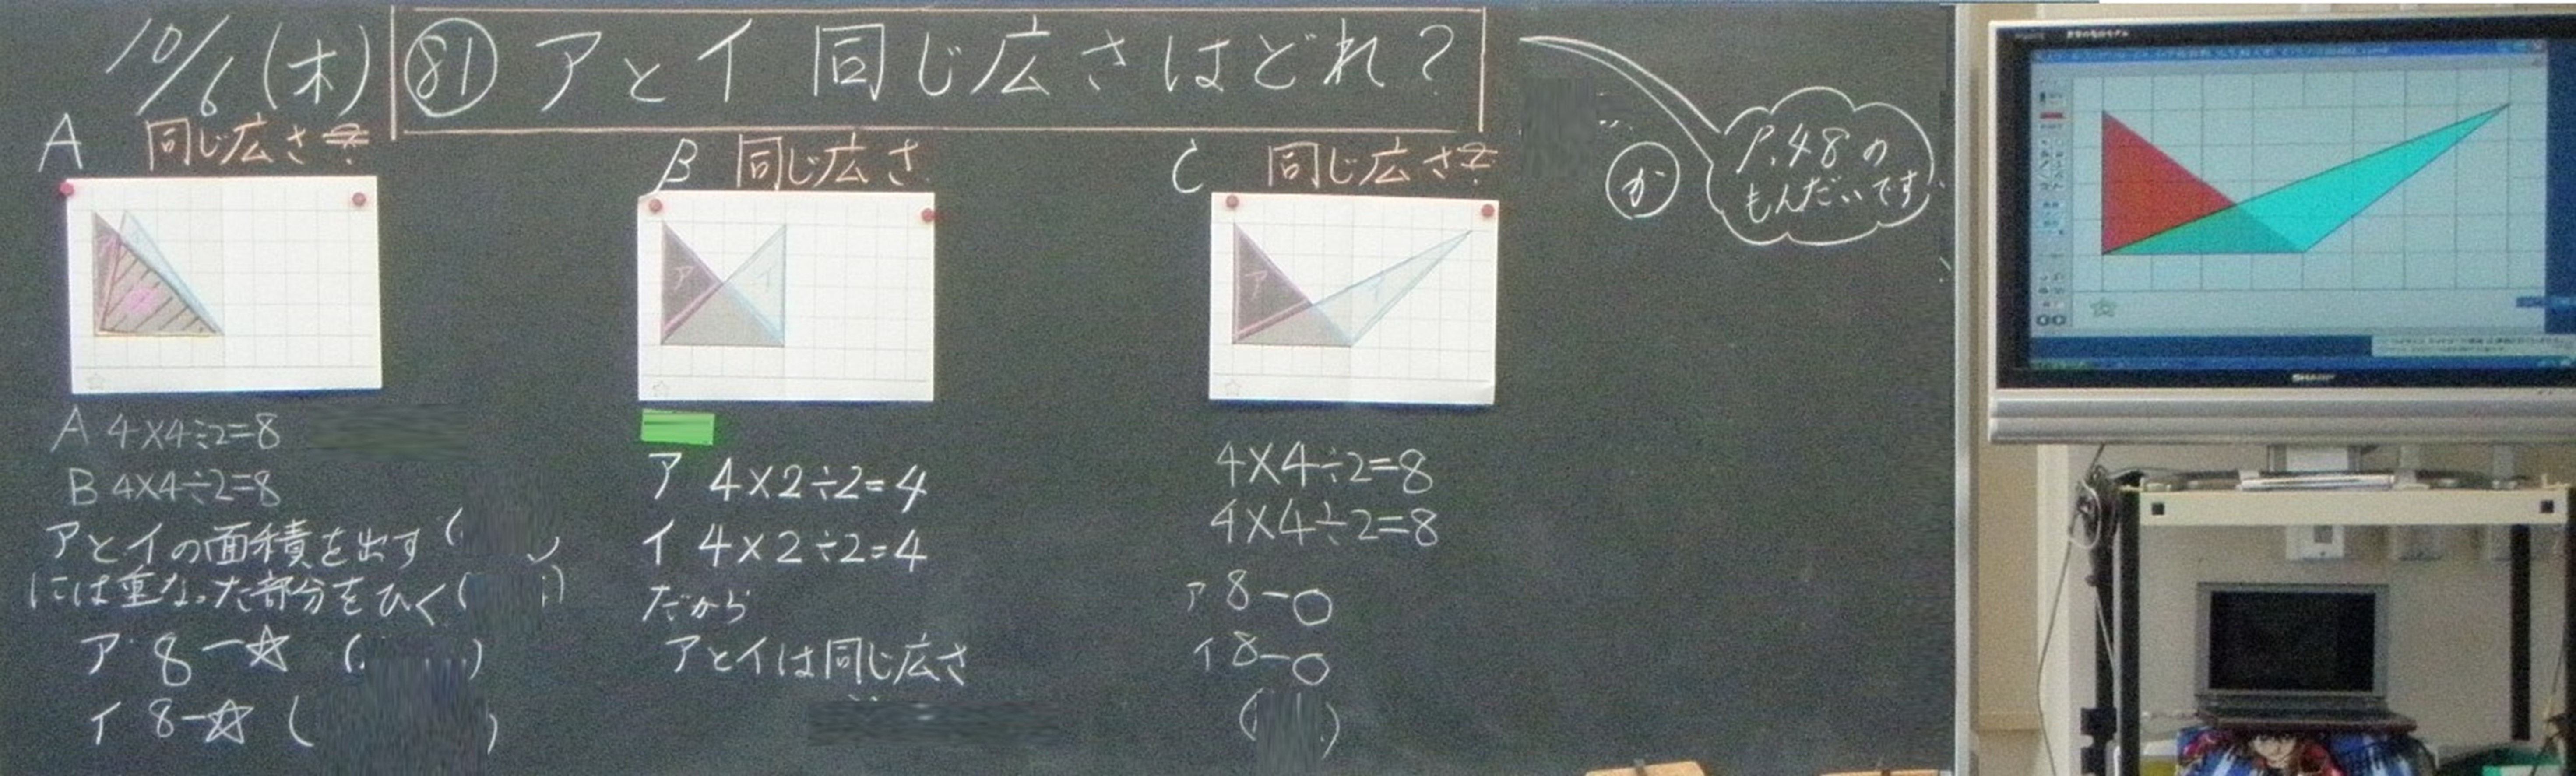 10/6(木)
81 アとイ 同じ広さはどれ?
か
P.48の
もんだいです
A 同じ広さ?
A 4×4÷2=8
B 4×4÷2=8
アとイの面積を出す(
には重なった部分をひく(
ア 8-☆ ( )
イ 8-☆ ( )
B 同じ広さ
ア
イ
ア 4×2÷2=4
イ 4×2÷2=4
だから
アとイは同じ広さ
C 同じ広さ?
ア
イ
4×4÷2=8
4×4÷2=8
ア 8-○
イ 8-○
( )
SHARP